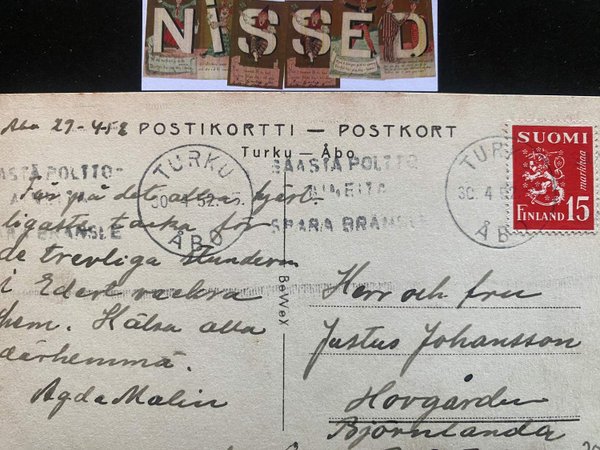 NISSED
Åbo 29-4-52
POSTIKORTTI — POSTKORT
Turku — Åbo
SUOMI
markkaa
FINLAND 15
TURKU
30. 4 52
ÅBO
SÄÄSTÄ POLTTO-
AINEITA
SPARA BRÄNSLE
TURKU
30. 4
ÅBO
ASTÄ POLTTO-
BRÄNSLE
Får på det allra hjärt-
ligaste tacka för
de trevliga stunderna
i Edert vackra
hem. Hälsa alla
därhemma.
Agda Malin
BeWeX
Herr och fru
Justus Johansson
Hovgården
Björnlanda